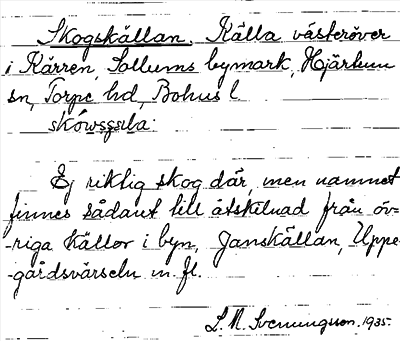 Skogskällan. Källa västeröver
i Kärren, Sollums bymark, Hjärtum
sn, Torpe hd, Bohus l.

Ej riklig skog där, men namnet
finnes sådant till åtskilnad från öv-
-riga källor i byn, Janskällan, Uppe-
-gårdsvärseln m. fl.
L. M. Svenungsson. 1935.